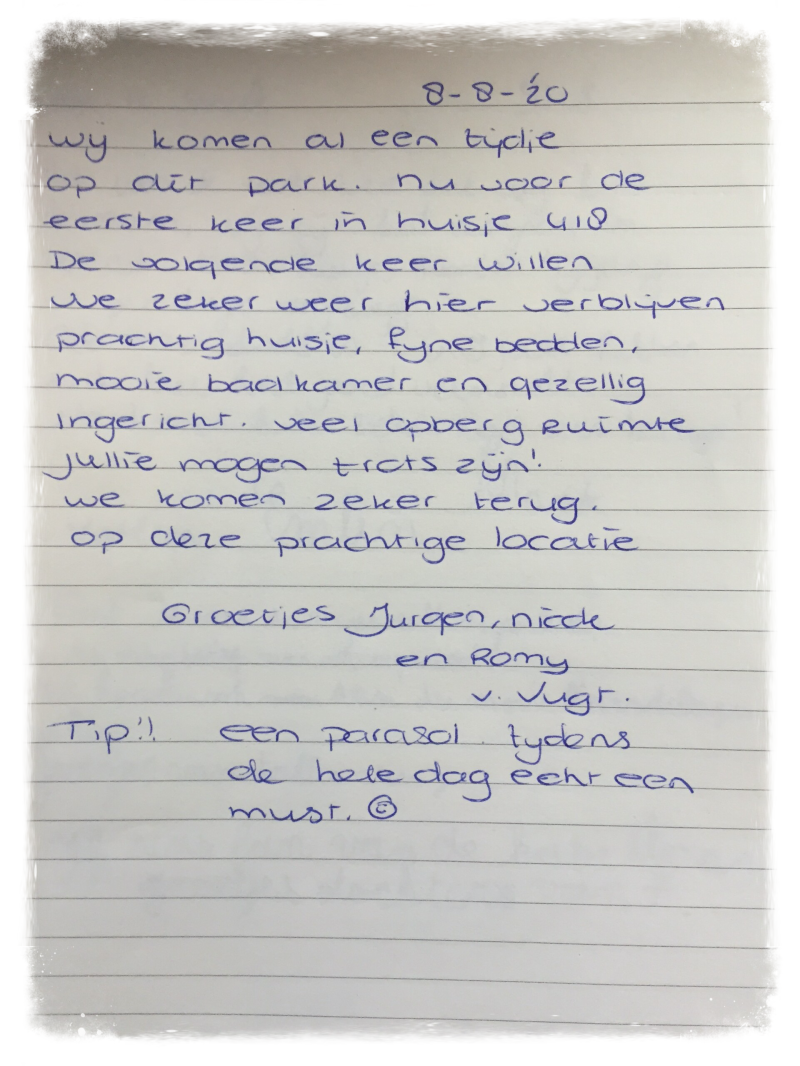 8-8-'20
wij komen al een tijdje
op dit park. nu voor de
eerste keer in huisje 418
De volgende keer willen
we zeker weer hier verblijven
prachtig huisje, fijne bedden,
mooie badkamer en gezellig
ingericht. veel opberg ruimte
jullie mogen trots zijn!
we komen zeker terug.
op deze prachtige locatie
Groetjes Jurgen,
en Romy
v. Vugt.
Tip!! een parasol tijdens
de hete dag echt een
must. ☺